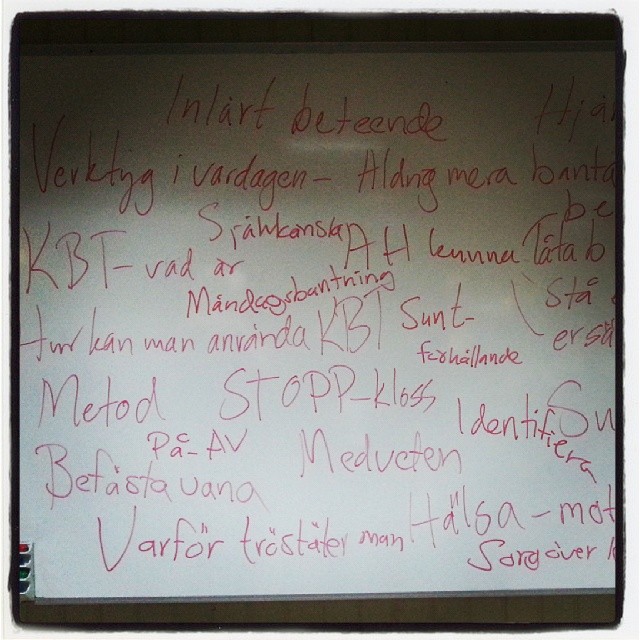 Inlärt beteende
Verktyg i vardagen - Aldrig mera banta
Självkänsla
KBT- vad är
Att kunna Tåla b
Måndagsbantning
Stå
hur kan man använda KBT
Sunt-
förhållande
Metod
STOPP-kloss
Identifiera
På-AV
Medveten
Befästa vana
Hälsa-mot
Varför tröstäter man
Sorg över